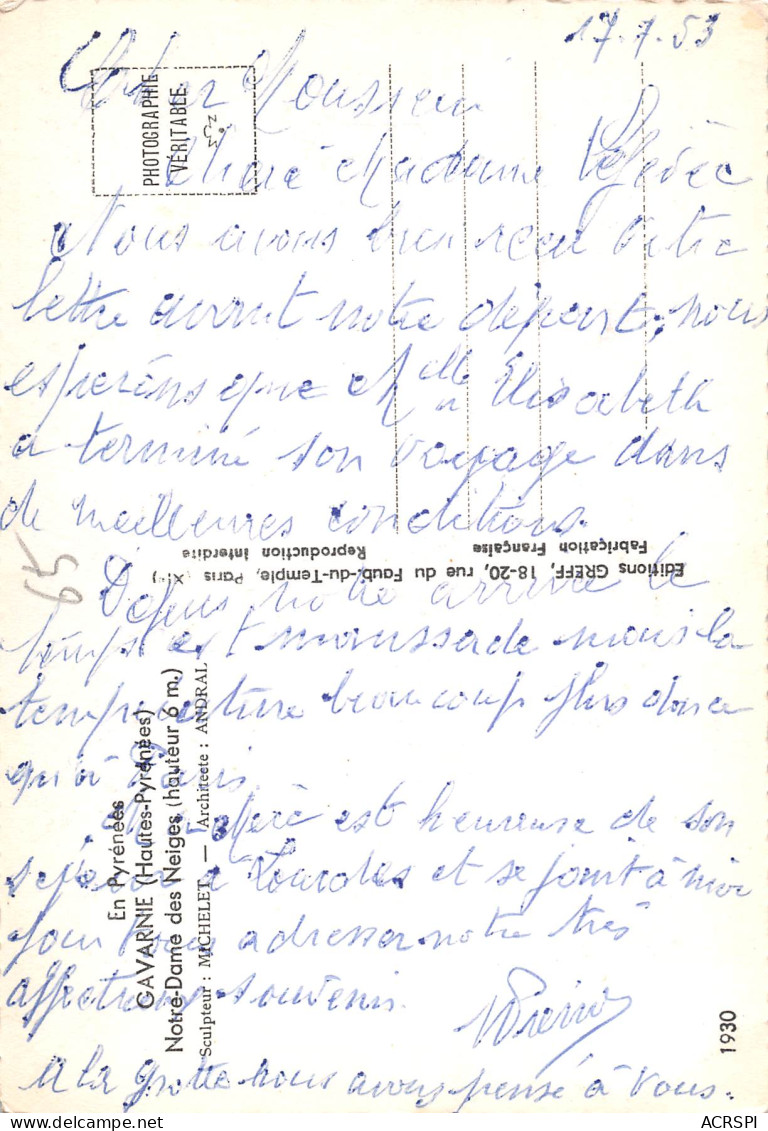 17.7.53
Cher Monsieur
chère Madame
Nous avons bien reçu votre
lettre avant notre départ, nous
espérons que Melle Elisabeth
a terminé son voyage dans
de meilleures conditions.
Depuis notre arrivée le
temps est maussade mais la
température beaucoup plus douce
qu'à Paris.
est heureuse de son
séjour à Lourdes et se joint à moi
pour vous adresser notre très
affectueux souvenir.
A la grotte nous avons pensé à vous.
65
PHOTOGRAPHIE
VERITABLE
Editions GREFF, 18-20, rue du Faub.-du-Temple, Paris
Fabrication Française
Reproduction Interdite
En Pyrénées
GAVARNIE (Hautes-Pyrénées)
Notre-Dame des Neiges (hauteur 6 m.)
Sculpteur : MICHELET — Architecte : ANDRAL
1930
ACRSPI